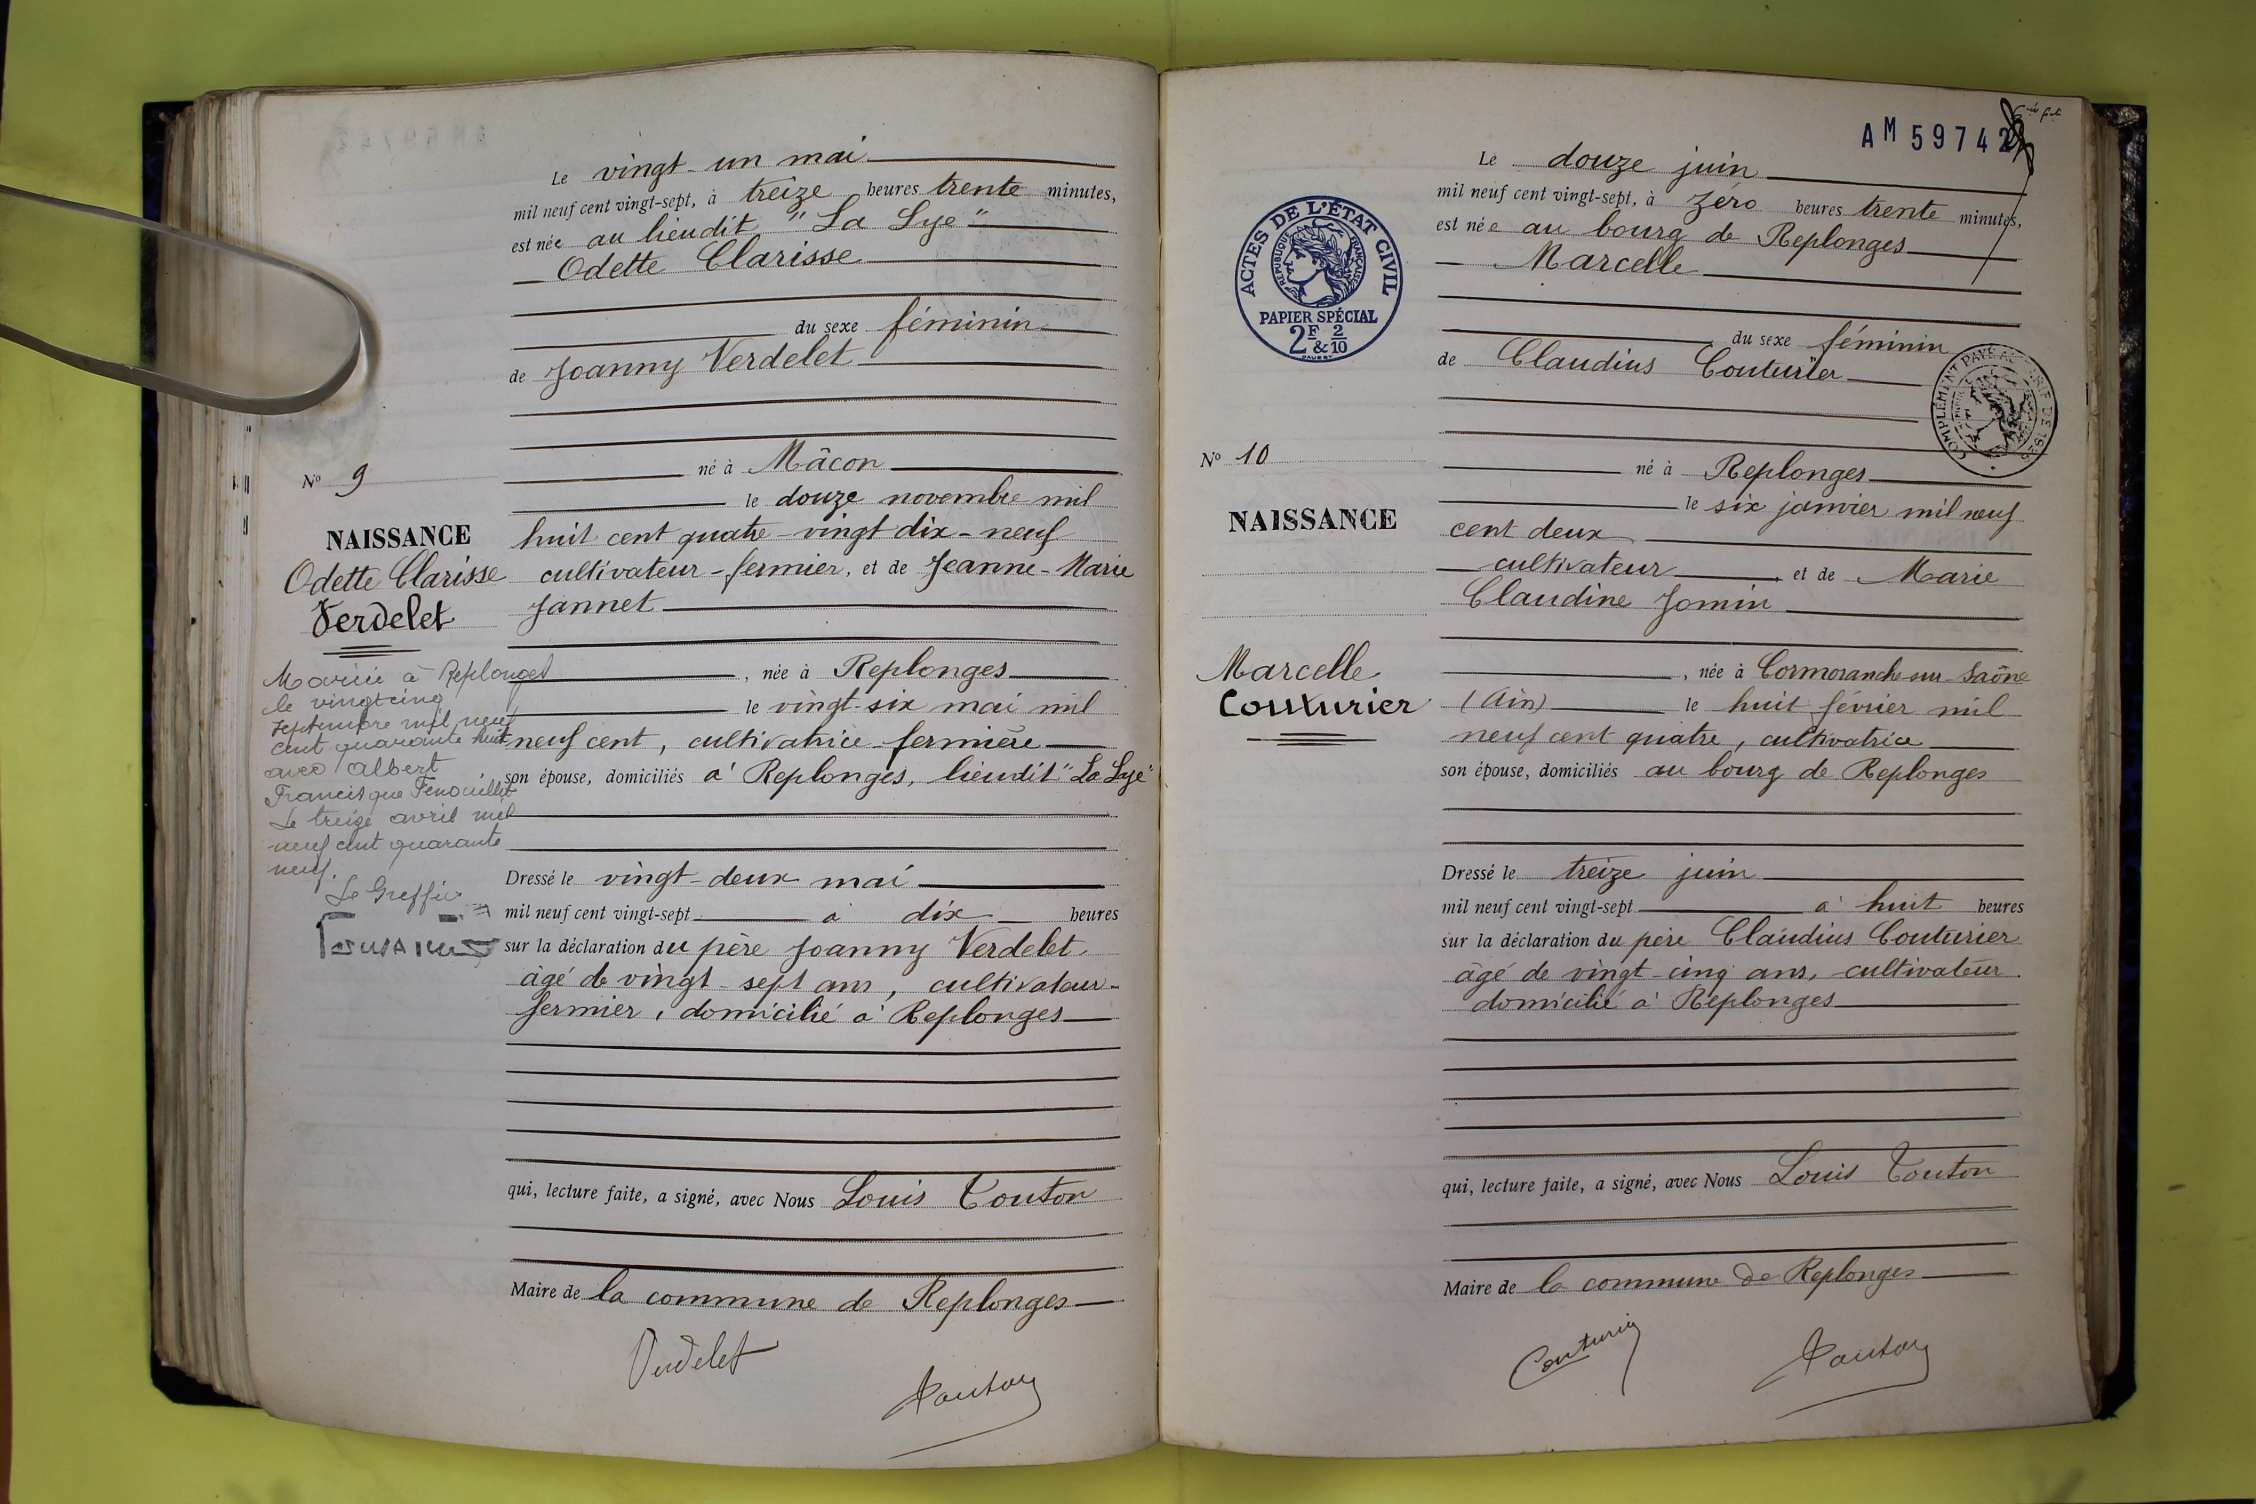 Le vingt-un mai
mil neuf cent vingt-sept, à treize heures trente minutes,
est née au lieudit "La Lye"
Odette Clarisse
du sexe féminin
de Joanny Verdelet
né à Mâcon
le douze novembre mil
huit cent quatre-vingt dix-neuf
cultivateur-fermier, et de Jeanne-Marie
Jannet
, née à Replonges
le vingt-six mai mil
neuf cent, cultivatrice-fermière
son épouse, domiciliés à Replonges, lieudit "La Lye"
Dressé le vingt-deux mai
mil neuf cent vingt-sept à dix heures
sur la déclaration du père Joanny Verdelet
âgé de vingt-sept ans, cultivateur-
fermier, domicilié à Replonges
qui, lecture faite, a signé, avec Nous Louis Touton
Maire de la commune de Replonges
Verdelet
Touton
No 9
NAISSANCE
Odette Clarisse
Verdelet
Mariée à Replonges
le vingt cinq
septembre mil neuf
cent quarante huit
avec Albert
Francisque Fenouillet
Le treize avril mil
neuf cent quarante
neuf.
Le Greffier
AM 59742
Le douze juin
mil neuf cent vingt-sept, à zéro heures trente minutes,
est née au bourg de Replonges
Marcelle
du sexe féminin
de Claudius Couturier
né à Replonges
le six janvier mil neuf
cent deux
cultivateur, et de Marie
Claudine Jomin
, née à Cormoranche-sur-Saône
(Ain) le huit février mil
neuf cent quatre, cultivatrice
son épouse, domiciliés au bourg de Replonges
Dressé le treize juin
mil neuf cent vingt-sept à huit heures
sur la déclaration du père Claudius Couturier
âgé de vingt-cinq ans, cultivateur
domicilié à Replonges
qui, lecture faite, a signé, avec Nous Louis Touton
Maire de la commune de Replonges
Couturier
Touton
ACTES DE L'ÉTAT CIVIL
RÉPUBLIQUE FRANÇAISE
PAPIER SPÉCIAL
2F & 2/10
No 10
NAISSANCE
Marcelle
Couturier
COMPLÉMENT PAYÉ